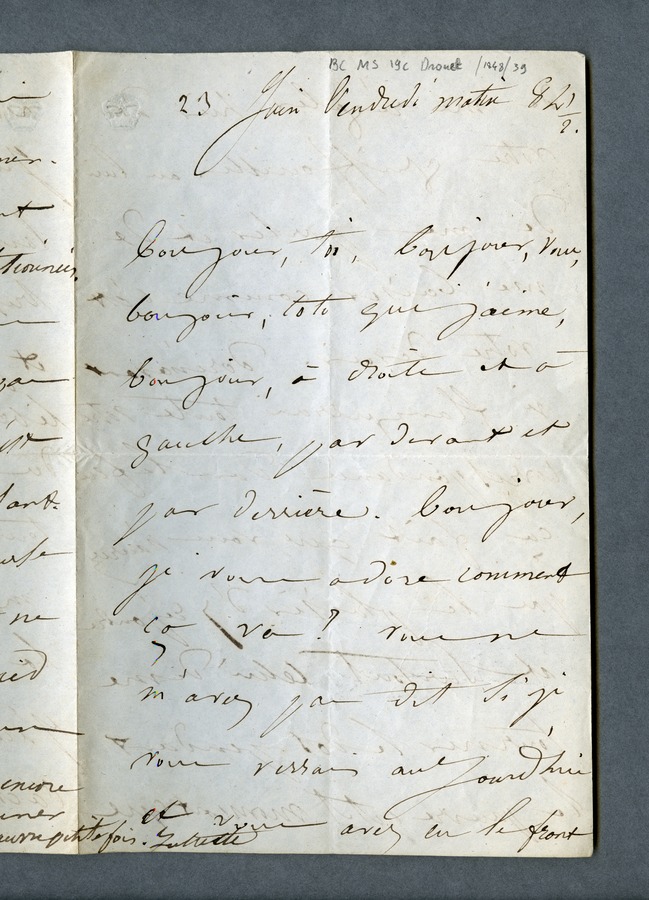 BC MS 19C Drouet /1848/39
23 Juin Vendredi matin 8h ½.
Bonjour, toi, bonjour, vous,
bonjour, toto que j'aime,
bonjour, à droite et à
gauche, par devant et
par derrière. Bonjour,
je vous adore comment
ça va ? vous ne
m'avez pas dit si je
vous verrais aujourd'hui
et vous avez eu le front
ner.
nt
pas
est
ne
ied
encore
petite fois. Juliette